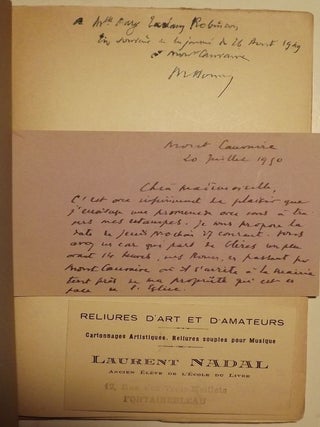 A Mlle Mary
En souvenir de la journée de 26 Avril 1949
à Mont Cauvaire
Mont Cauvaire
20 Juillet 1950
Chère Mademoiselle,
C'est avec infiniment de plaisir que
j'envisage une promenade avec vous à tra
vers mes estampes. Je vous propose la
date de Jeudi prochain 27 courant. Vous
avez un car qui part de Clères un peu
avant 14 heures, vers Rouen, en passant par
Mont Cauvaire où il s'arrête à la mairie
tout près de ma propriété qui est en
face de l'Eglise.
RELIURES D'ART ET D'AMATEURS
Cartonnages Artistiques. Reliures souples pour Musique
LAURENT NADAL
ANCIEN ÉLÈVE DE L'ÉCOLE DU LIVRE
12, Rue des Trois Maillets
FONTAINEBLEAU